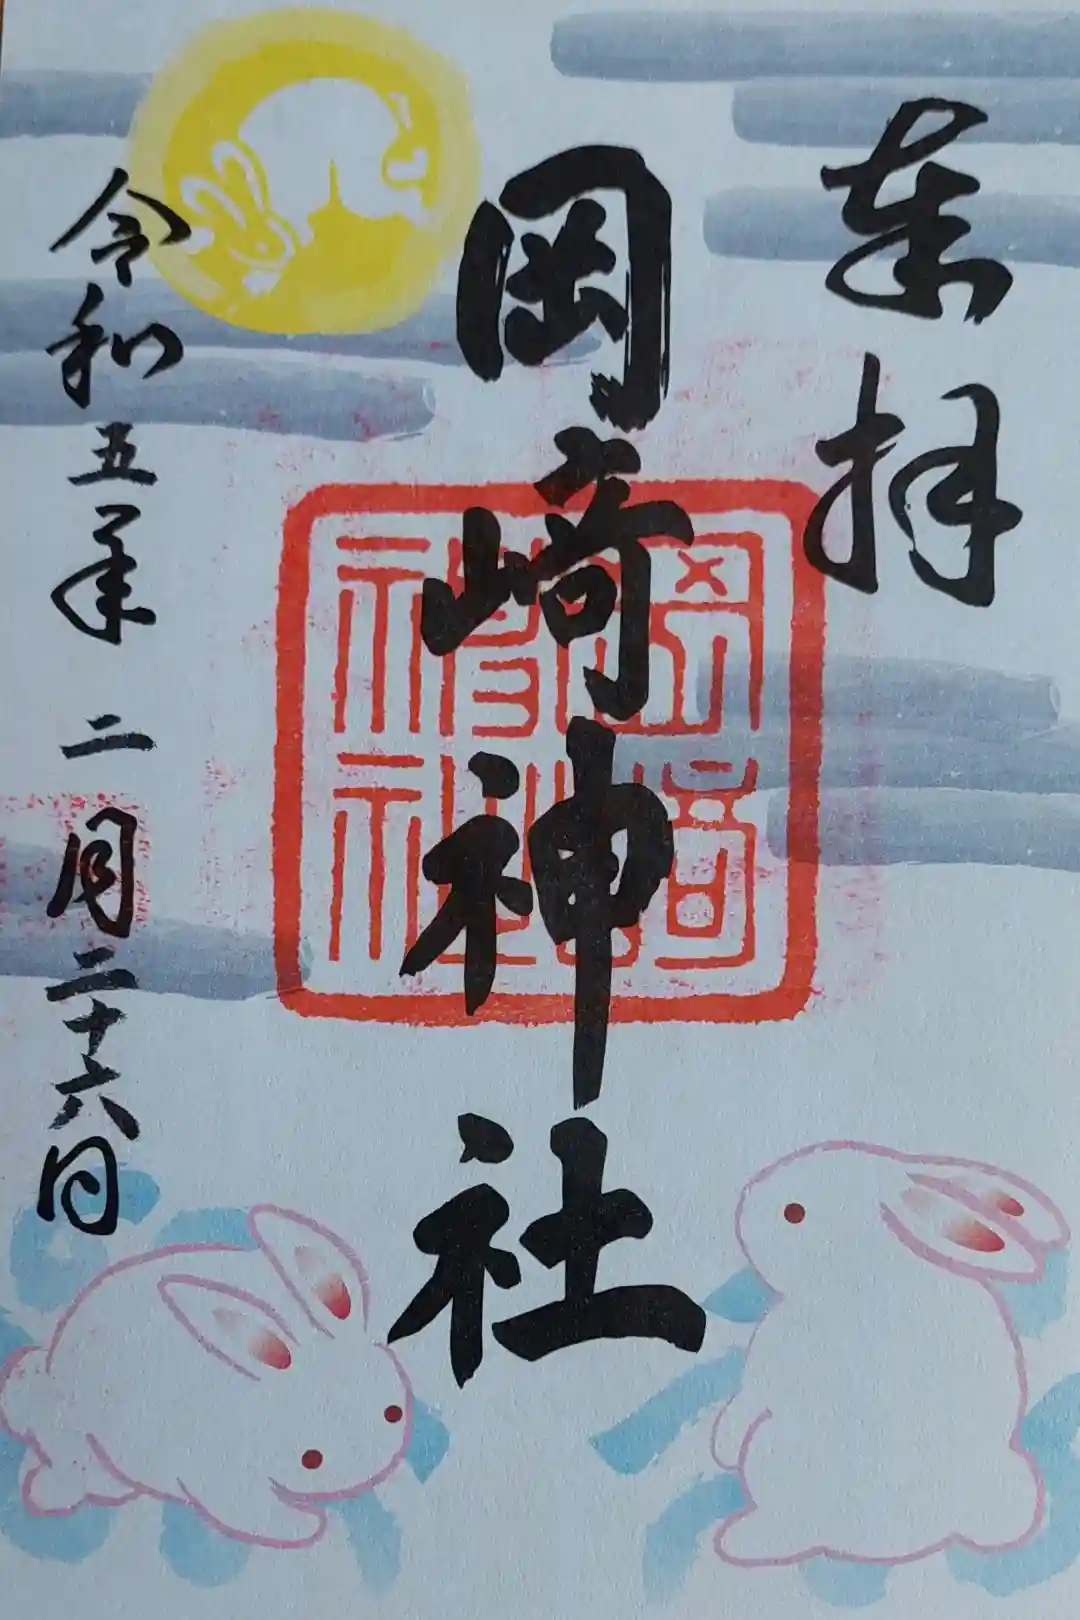 奉拝
岡崎神社
令和五年二月二十六日